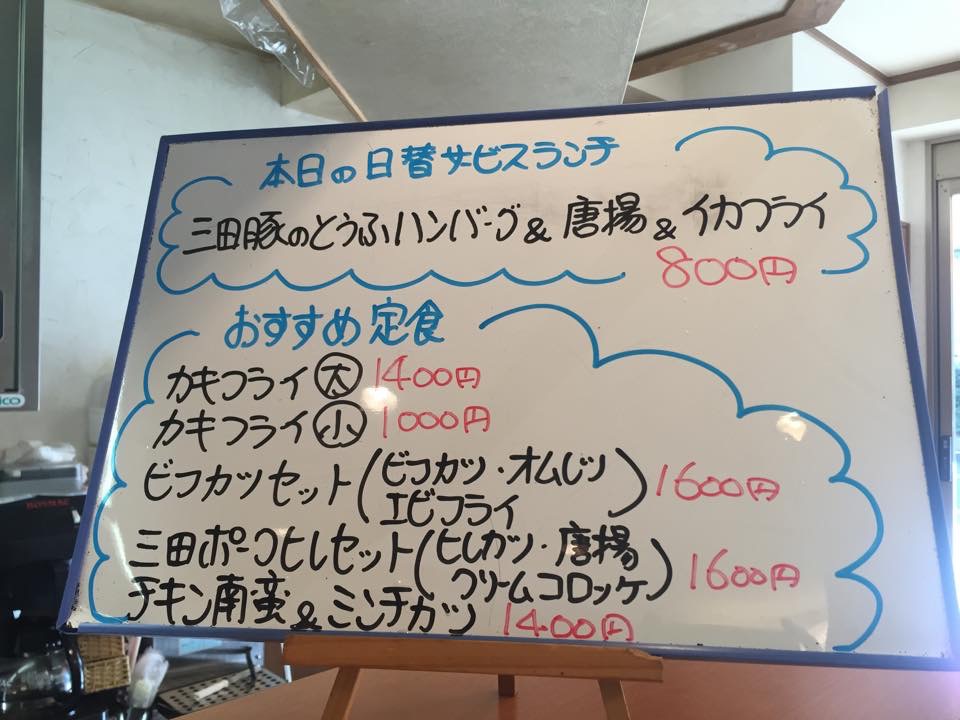 本日の日替サービスランチ
三田豚のとうふハンバーグ&唐揚&イカフライ
800円
おすすめ定食
カキフライ大 1400円
カキフライ小 1000円
ビフカツセット(ビフカツ・オムレツ
エビフライ) 1600円
三田ポークヒレセット(ヒレカツ・唐揚
クリームコロッケ) 1600円
チキン南蛮&ミンチカツ 1400円
BONMAC